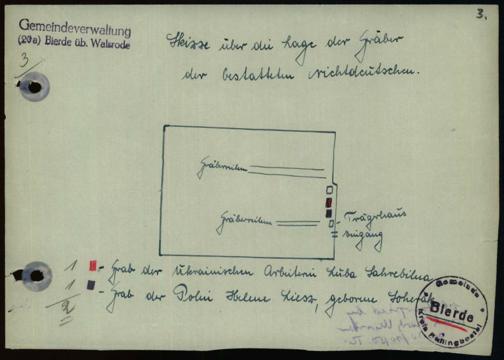 3.
Gemeindeverwaltung
(20a) Bierde üb. Walsrode
3
Skizze über die Lage der Gräber
der bestatteten Nichtdeutschen.
Gräberreihen
Gräberreihen
Trägerhaus
Eingang
1 - Grab der Ukrainischen Arbeiterin Luba
1 - Grab der Polin Helene geborene
2
Gemeinde
Bierde
Kreis Fallingbostel